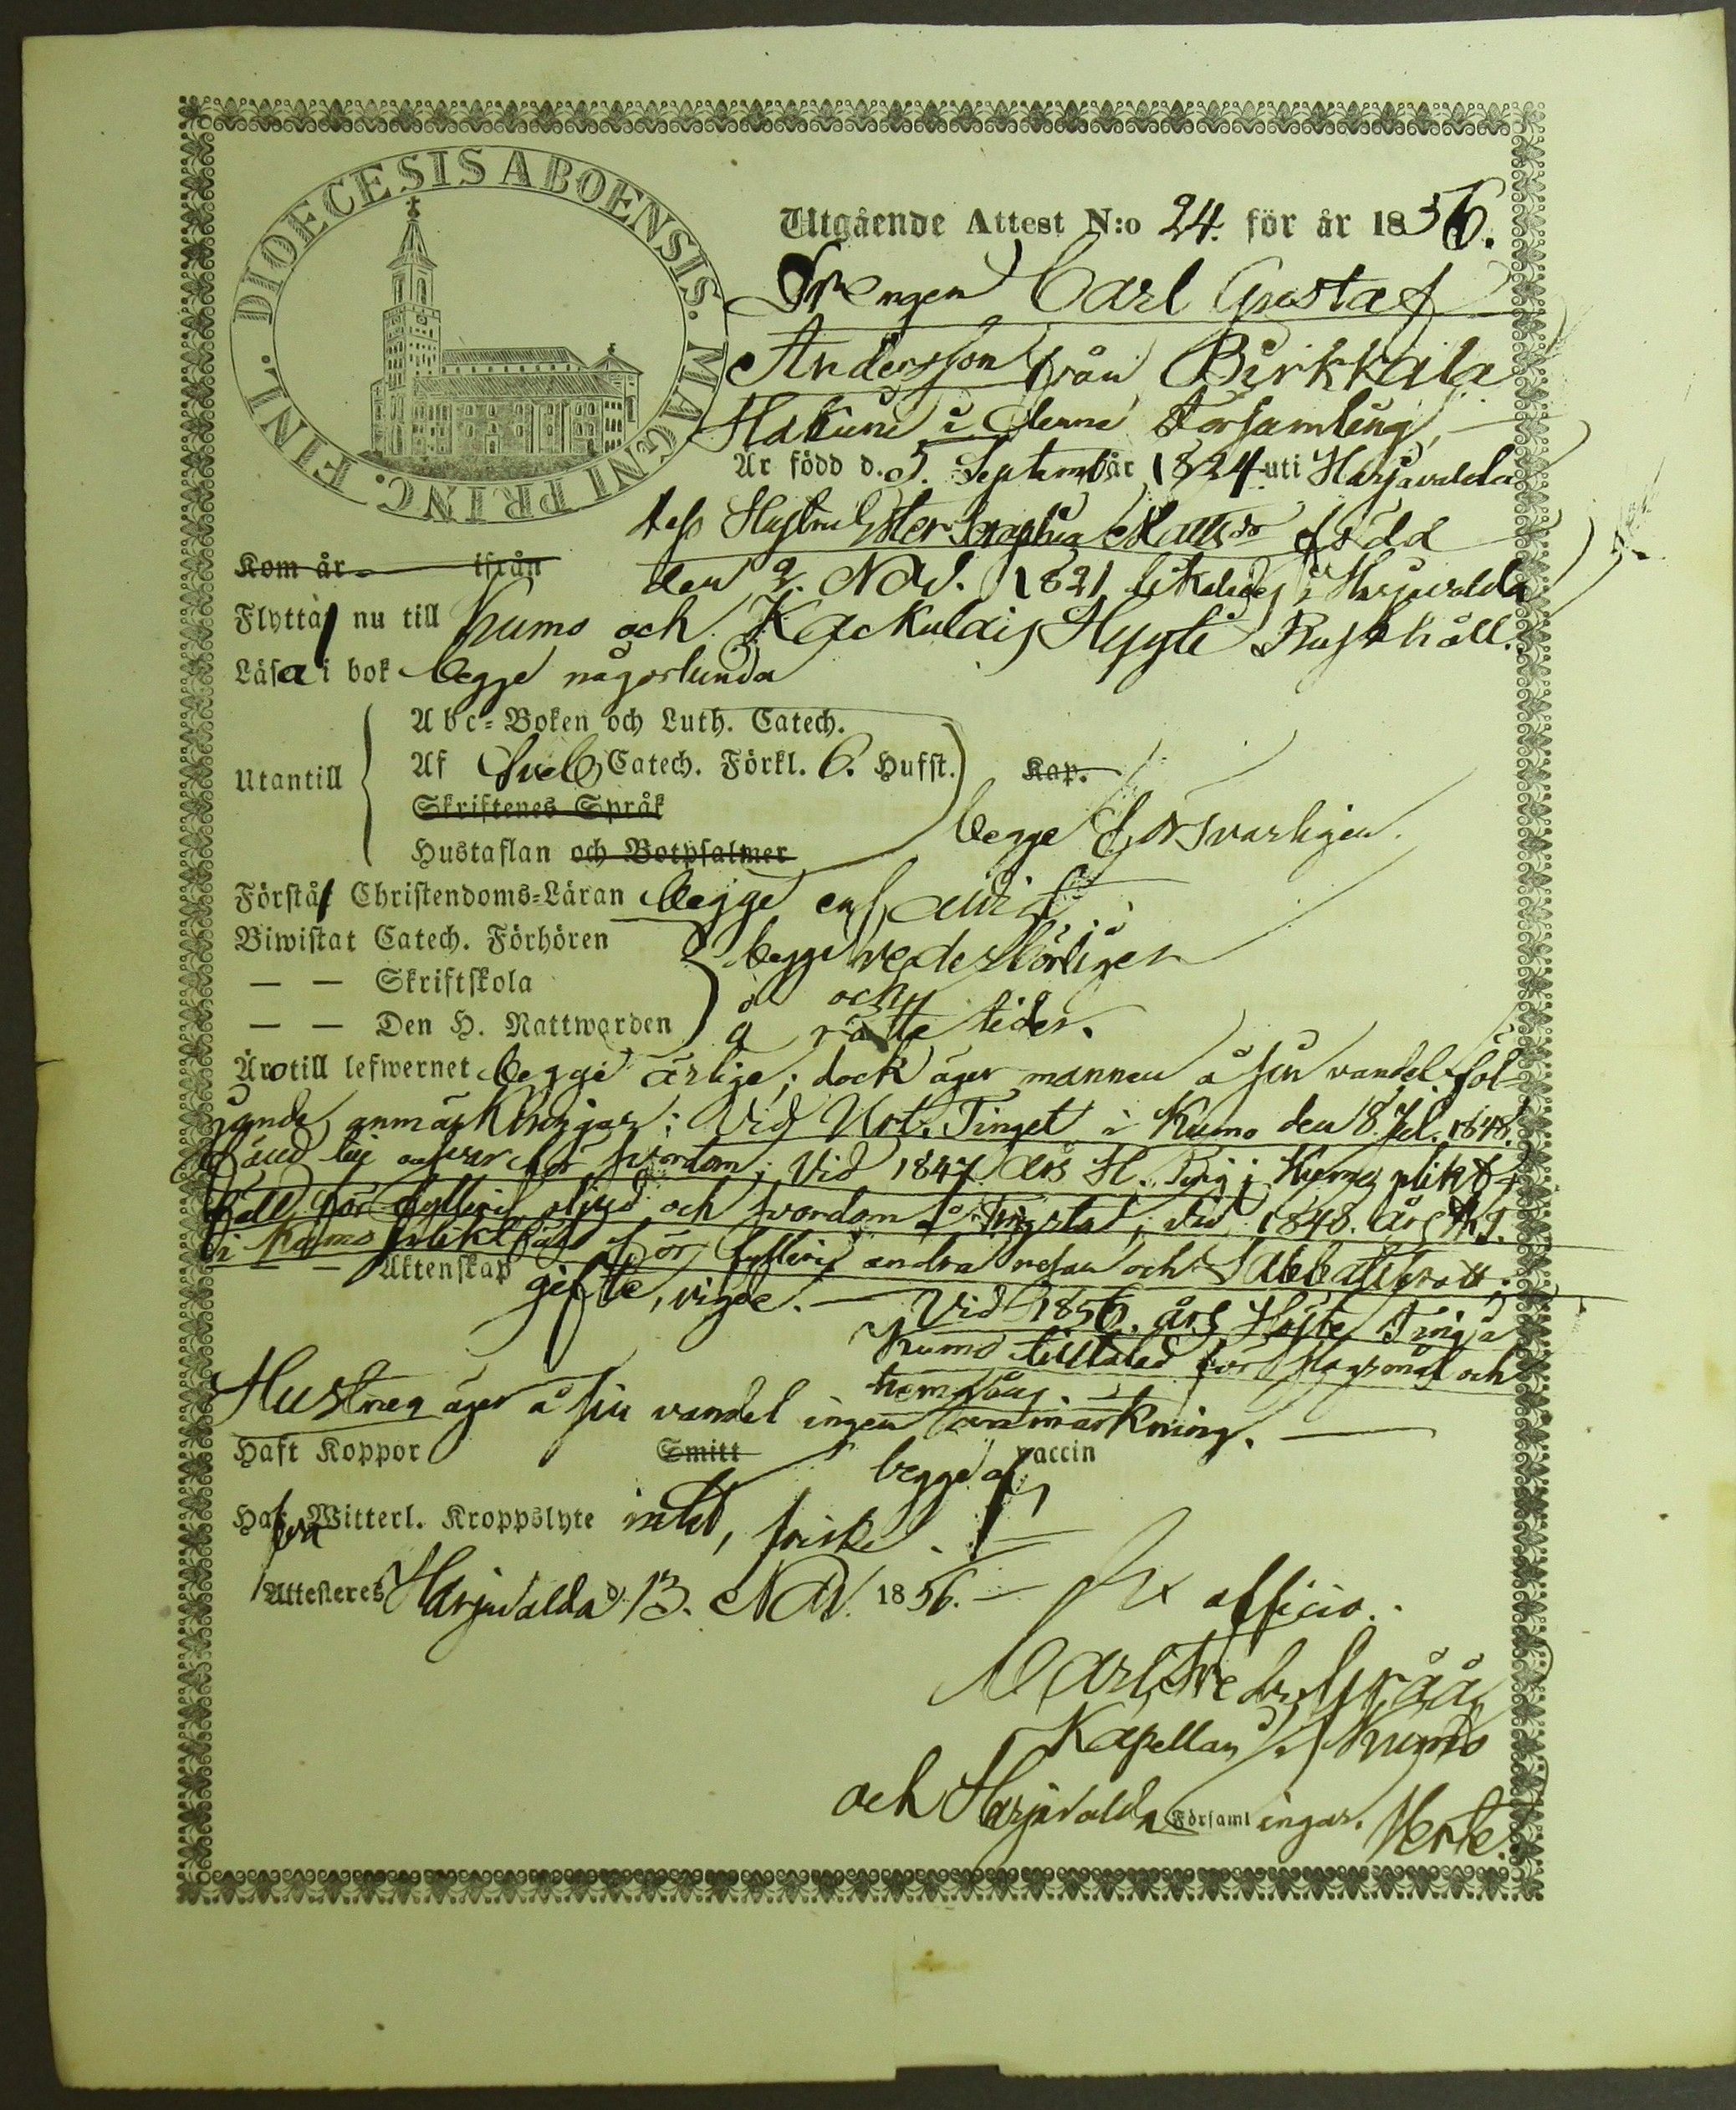 DIOECESIS ABOENSIS. MAGNI PRINC. FINL.
Utgående Attest N:o 24. för år 1856.
Drengen Carl Gustaf
Andersson från Birkkala
Hakuni i denna Församling,
Är född d. 5. September 1824 uti Harjavalda
dess Hustru Ester Sophia Mattsdr född
Kom år ifrån
den 2. Nov. 1821 likaledes i Harjavalda
Flytta nu till Kumo och Kackulais Hyyti Rusthåll.
Läsa i bok begge någorlunda
Abc-Boken och Luth. Catech.
Utantill Af Sveb. Catech. Förkl. 6. Hufst. Kap.
Skriftenes Språk
begge försvarligen.
Hustaflan och Botpsalmer
Förstå Christendoms-Läran begge enfaldigt
Biwistat Catech. Förhören begge vederbörligen
— — Skriftskola och
— — Den H. Nattwarden å rätta tider.
Äro till lefwernet begge ärlige; dock äger mannen å sin vandel föl-
jande anmärkningar: Vid Urt. Tinget i Kumo den 8. Jul. 1848.
för svordom; Vid 1847 års H. Ting i Kumo plikt-
fäld för fylleri, oljud och svordom å Tingsta; vid 1848. års H.T.
i Kumo pliktfäld för fylleri andra resan och Sabbatsbrott;
— — Äktenskap gifte, vigde. — Vid 1856. års Höste Ting i
Kumo tilltalad för slagsmål och
hemgång.
Hustrun äger å sin vandel ingen anmärkning.
Haft Koppor Smitt begge af vaccin
Hafva Witterl. Kroppslyte intet, friske.
Attesteres Harjavalda d. 13. Nov. 1856. Ex officio.
Carl Fredr.
Kapellan i Kumo
och Harjavalda Församlingar. Verte.